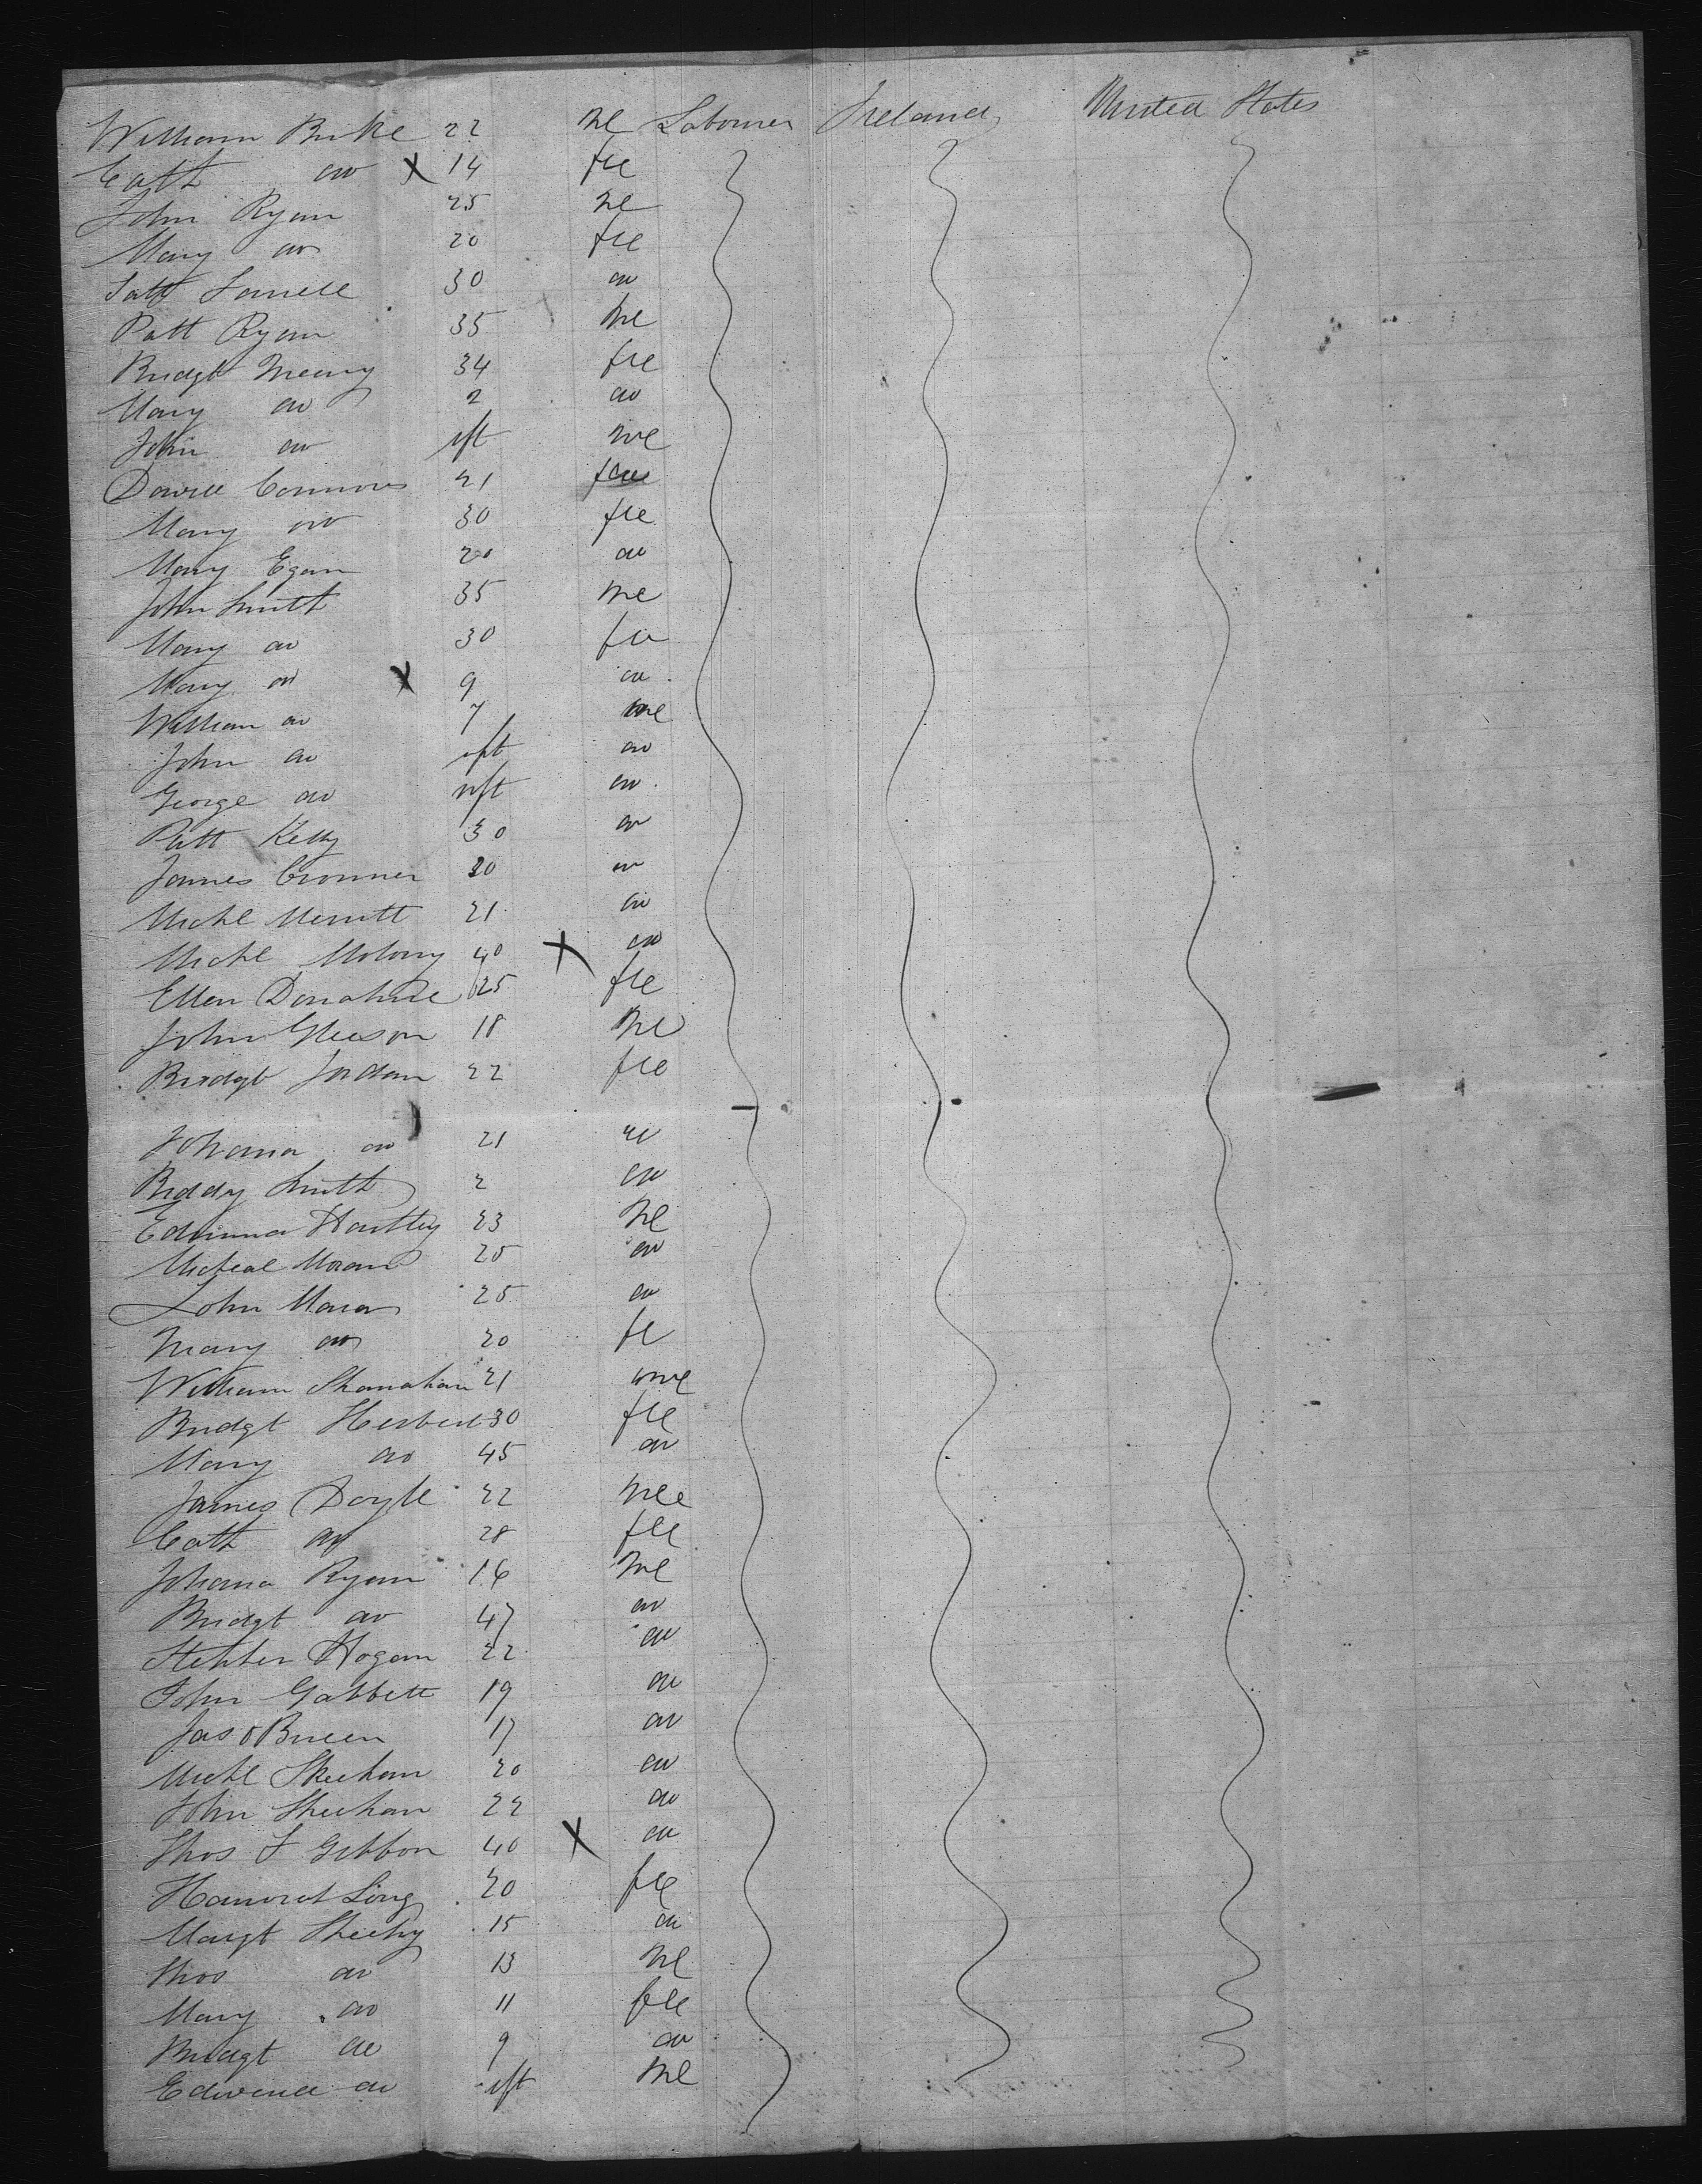 William Burke 22 me Labourer Ireland United States
Cath do X 14 fle
John Ryan 25 me
Mary do 20 fle
30 do
Patt Ryan 35 me
Bridgt Meany 34 fle
Mary do 2 do
John do ift me
Connors 21
Mary do 30 fle
Mary Egan 20 do
John Smith 35 me
Mary do 30 fle
Mary do X 9 do
William do 7 me
John do ift do
George do ift do
Patt Kelly 30 do
James Cronner 20 do
Michl Merritt 21 do
Michl Molony 40 X do
Ellen Donahue 25 fle
John Gleeson 18 me
Bridgt Jordan 22 fle
Johana do 21 do
Biddy Smith 2 do
Hartley 23 me
Micheal Moran 25 do
John Mara 25 do
Mary do 20 fle
William Shanahan 21 me
Bridgt Herbert 30 fle
Mary do 45 do
James Doyle 22 me
Cath do 28 fle
Johana Ryan 16 me
Bridgt do 47 do
Stephen Hogan 22 do
John Gabbett 19 do
Jas OBrien 17 do
Michl Sheehan 20 do
John Sheehan 22 do
Thos F Gibbon 40 X do
20 fle
Margt Sheehy 15 do
Thos do 13 me
Mary do 11 fle
Bridgt do 9 do
do ift me